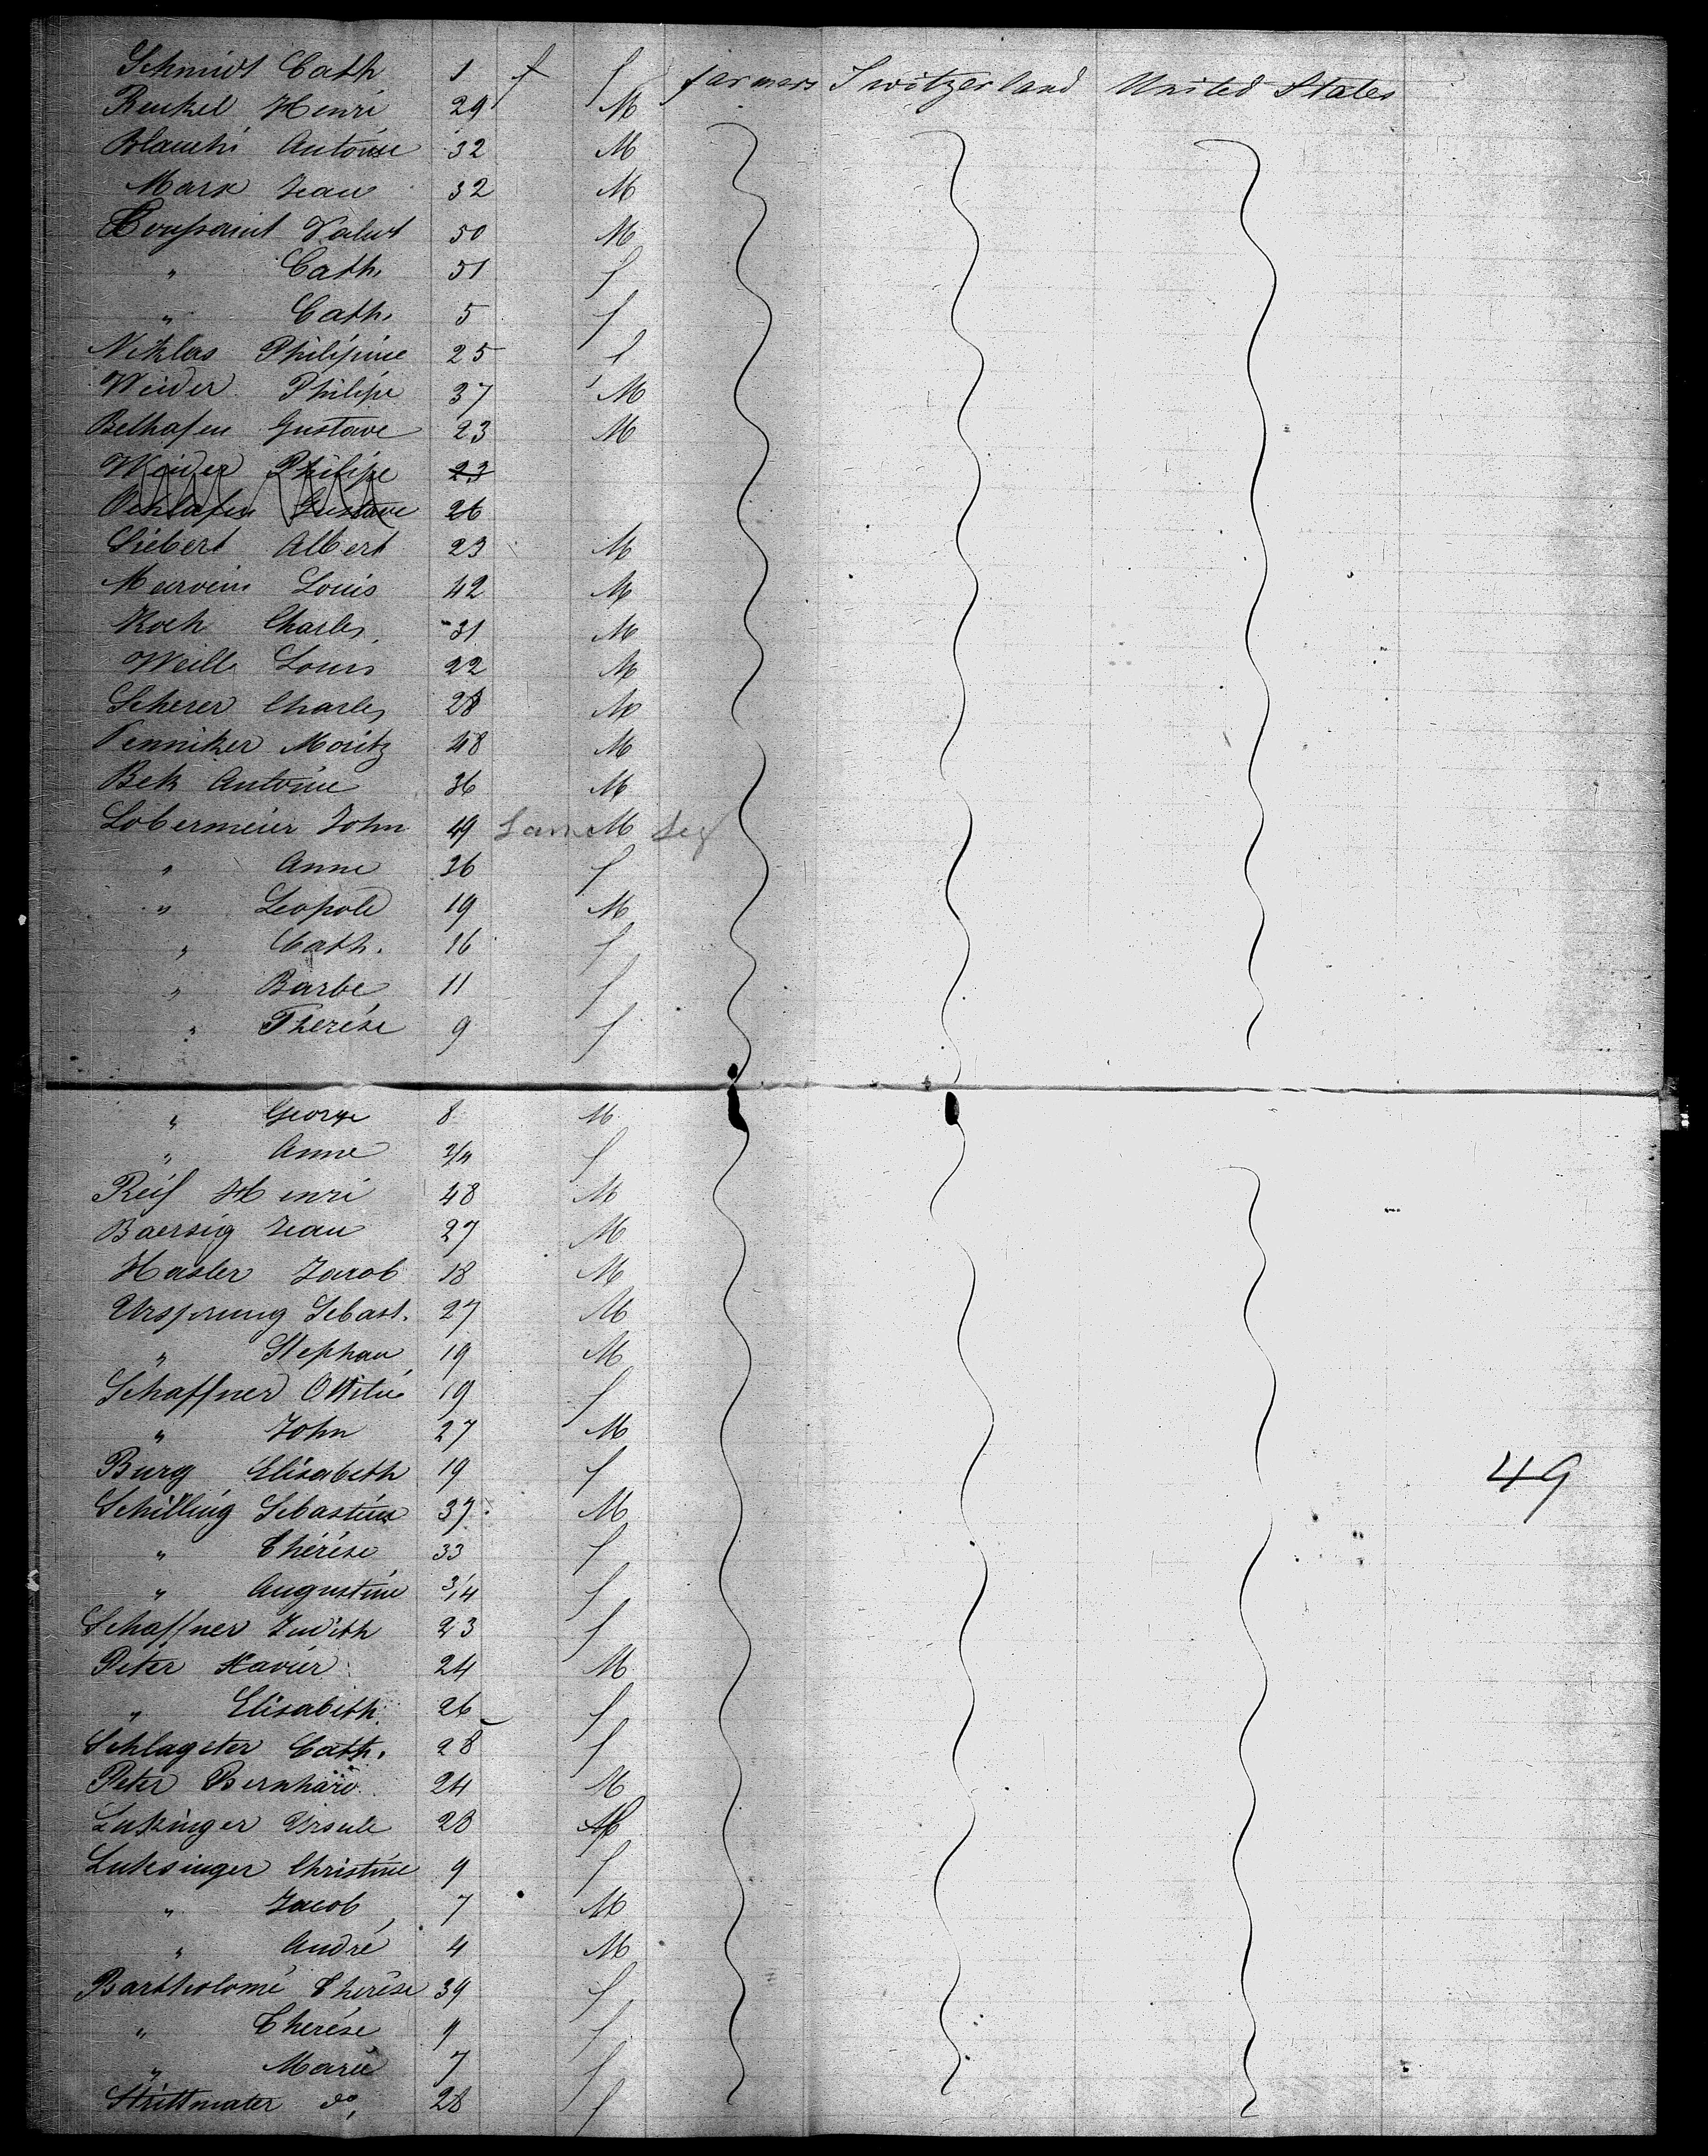 Schmidt Cath 1 f f farmers Switzerland United States
Renkel Henri 29 M
Blanchi Antoine 32 M
Marx Jean 32 M
Toussaint Valent 50 M
" Cath. 51 f
" Cath. 5 f
Niklas Philipine 25 f
Weider Philipe 37 M
Belhafen Gustave 23 M
Weider Philipe 23
Gustave 26
Siebert Albert 23 M
Louis 42 M
Koch Charles 31 M
Weill Louis 22 M
Scherer Charles 28 M
Penniker Moritz 48 M
Bek Antoine 36 M
Lobermeier John 49 M
" Anne 36 f
" Leopold 19 M
" Cath. 16 f
" Barbe 11 f
" Therése 9 f
" George 8 M
" Anne 3/4 f
Reif Henri 48 M
Baersig Jean 27 M
Hasler Jacob 18 M
Ursprung Sebast. 27 M
" Stephan 19 M
Schaffner Ottilie 19 f
" John 27 M
Burg Elisabeth 19 f
49
Schilling Sebastien 37 M
" Thérése 33 f
" Augustine 3/4 f
Schaffner Judith 23 f
Peter Xavier 24 M
" Elisabeth 26 f
Schlageter Cath. 28 f
Peter Bernhard 24 M
Luksinger Ursule 28
Luksinger Christine 9 f
" Jacob 7 M
" André 4 M
Bartholomé Therése 39 f
" Therése 9 f
" Marie 7 f
Strittmater do, 28 f